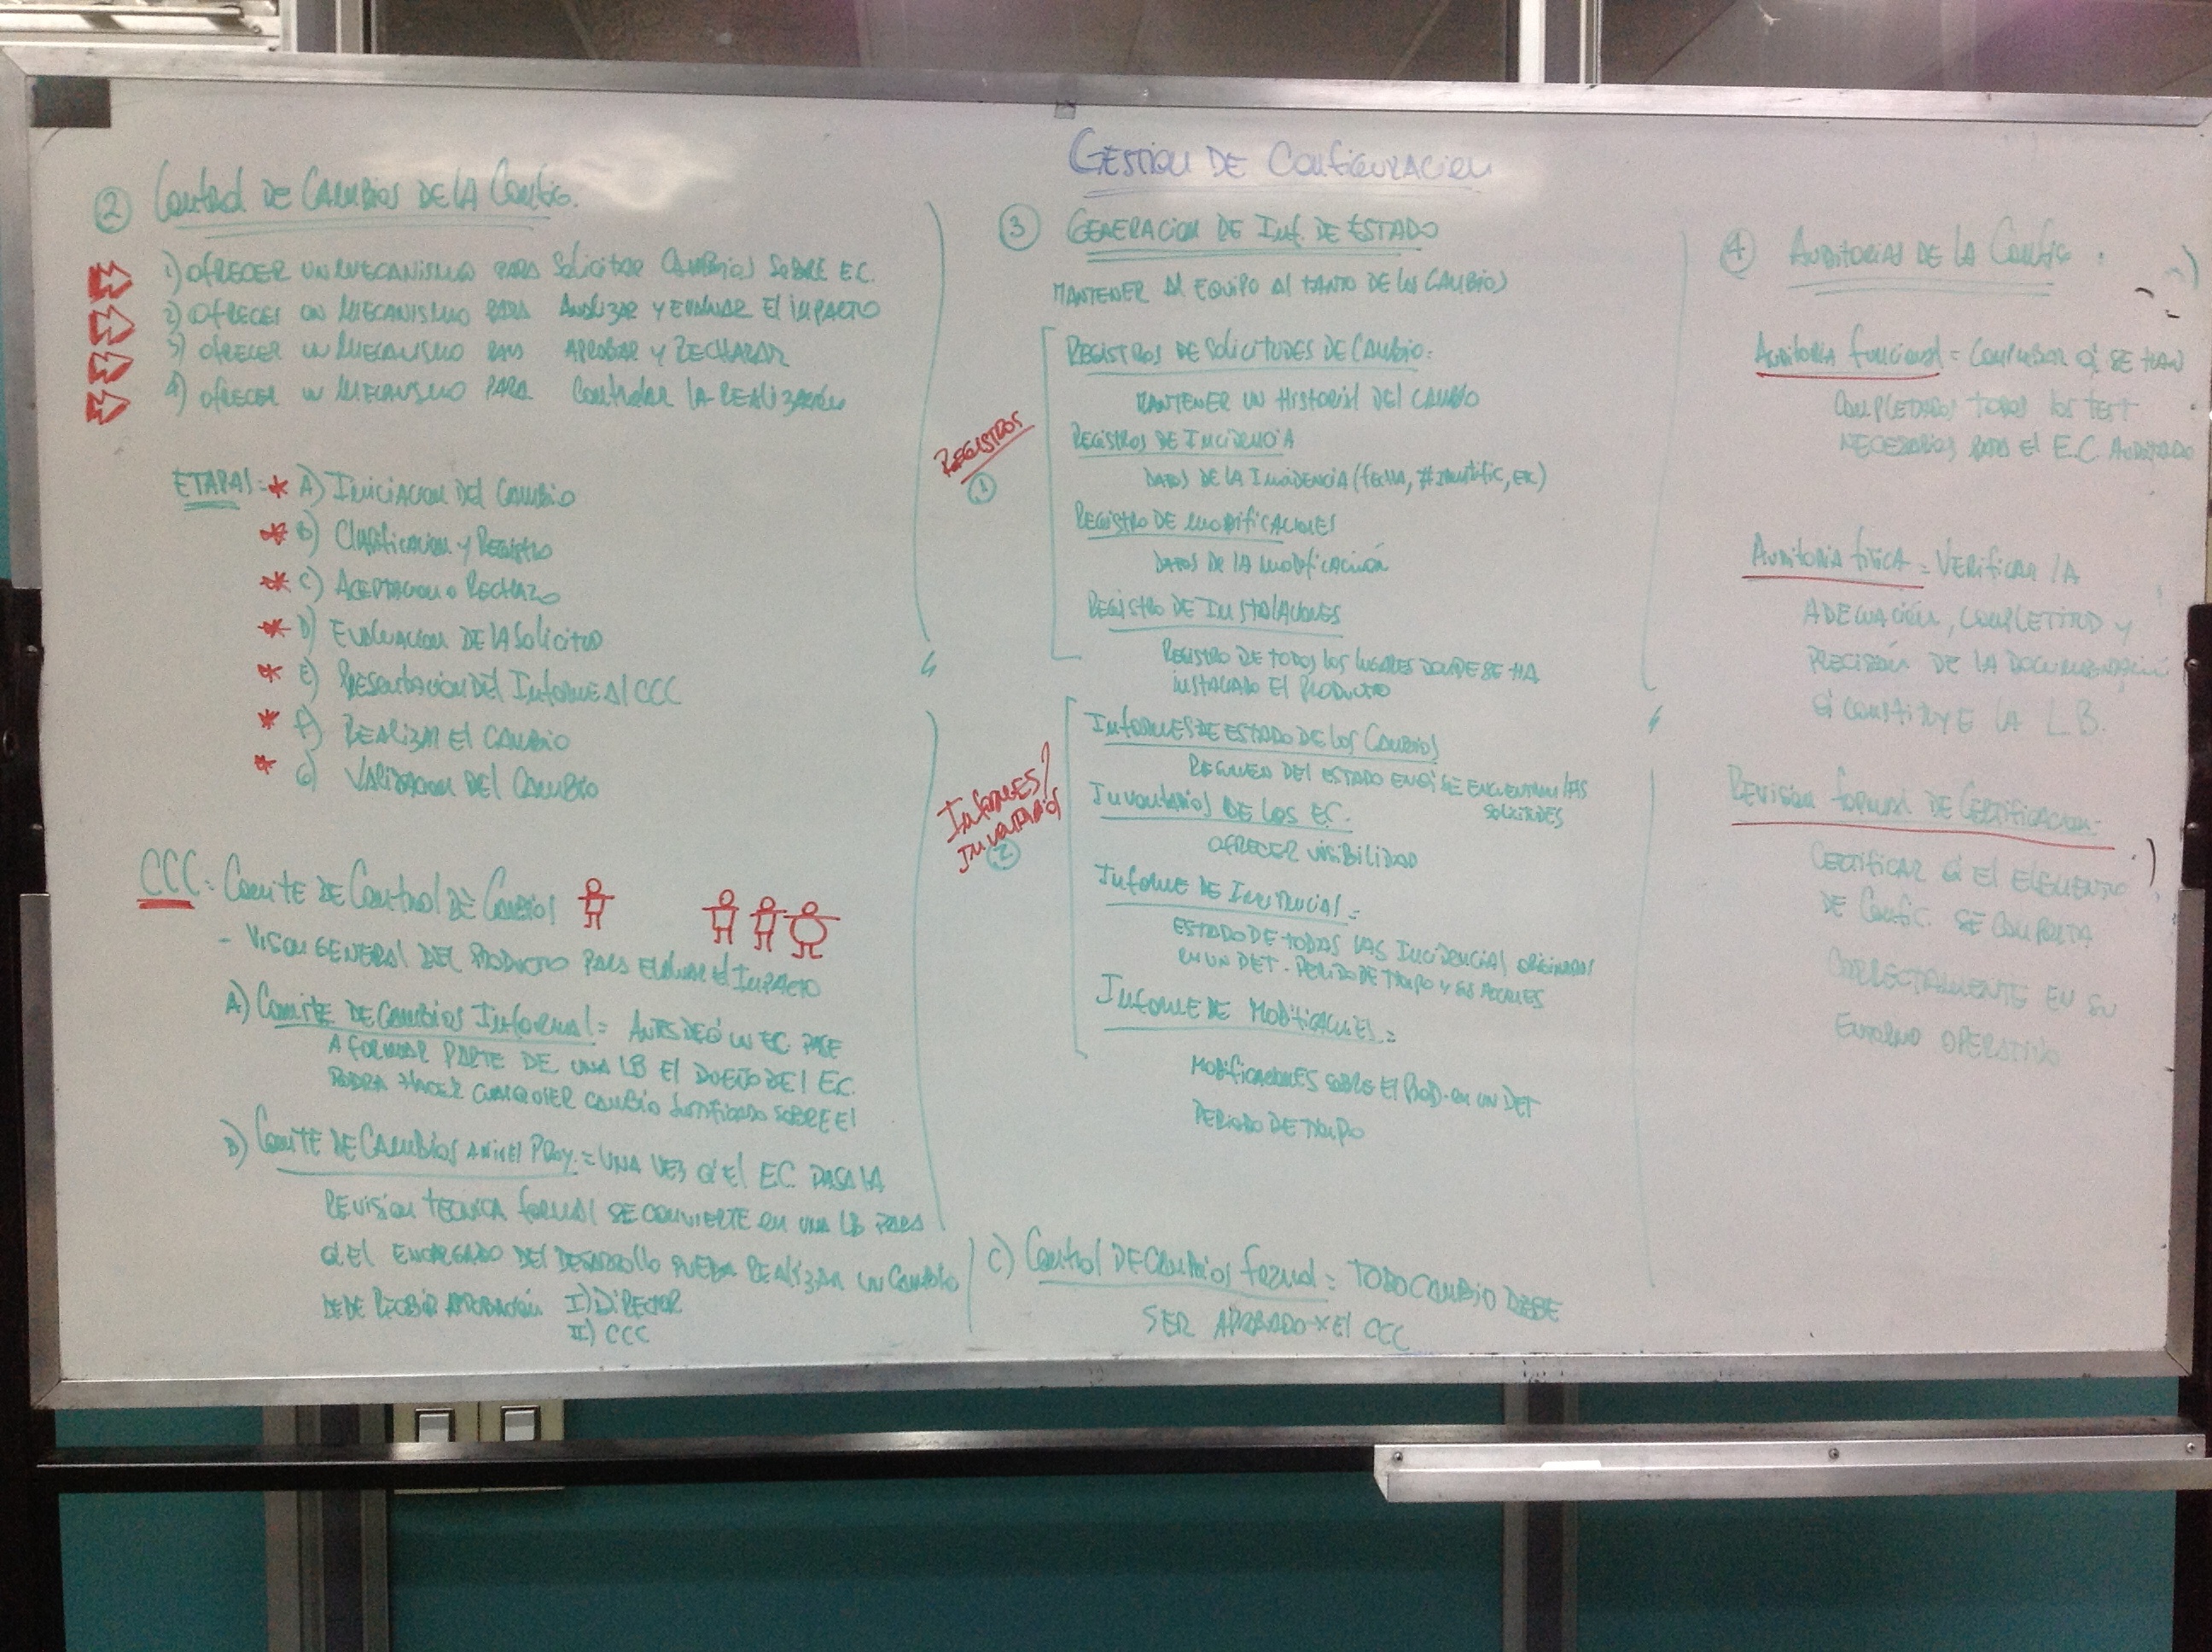 GESTION DE CONFIGURACION
② Control DE CAMBIOS DE LA CONFIG.
1) OFRECER UN MECANISMO PARA SOLICITAR CAMBIOS SOBRE E.C.
2) OFRECER UN MECANISMO PARA ANALIZAR Y EVALUAR EL IMPACTO
3) OFRECER UN MECANISMO PARA APROBAR Y RECHAZAR
4) OFRECER UN MECANISMO PARA CONTROLAR LA REALIZACIÓN
ETAPAS: * A) INICIACION DEL CAMBIO
* B) CLASIFICACION Y REGISTRO
* C) ACEPTACION O RECHAZO
* D) EVALUACION DE LA SOLICITUD
* E) PRESENTACION DEL INFORME AL CCC
* F) REALIZAR EL CAMBIO
* G) VALIDACION DEL CAMBIO
CCC: COMITE DE CONTROL DE CAMBIOS
- VISION GENERAL DEL PRODUCTO PARA EVALUAR EL IMPACTO
A) COMITE DE CAMBIOS INFORMAL = ANTES DE Q' UN EC. PASE
A FORMAR PARTE DE UNA LB EL DUEÑO DEL EC.
PODRA HACER CUALQUIER CAMBIO JUSTIFICADO SOBRE EL
B) COMITE DE CAMBIOS A NIVEL PROY. = UNA VEZ Q' EL EC. PASA LA
REVISION TECNICA FORMAL SE CONVIERTE EN UNA LB PARA
Q' EL ENCARGADO DEL DESARROLLO PUEDA REALIZAR UN CAMBIO
DEBE RECIBIR APROBACIÓN I) DIRECTOR
II) CCC
C) CONTROL DE CAMBIOS FORMAL = TODO CAMBIO DEBE
SER APROBADO X EL CCC
③ GENERACION DE INF. DE ESTADO
MANTENER AL EQUIPO AL TANTO DE LOS CAMBIOS
REGISTROS
①
REGISTROS DE SOLICITUDES DE CAMBIO:
MANTENER UN HISTORIAL DEL CAMBIO
REGISTROS DE INCIDENCIA
DATOS DE LA INCIDENCIA (FECHA, #IDENTIFIC, ETC)
REGISTRO DE MODIFICACIONES
DATOS DE LA MODIFICACIÓN
REGISTRO DE INSTALACIONES
REGISTRO DE TODOS LOS LUGARES DONDE SE HA
INSTALADO EL PRODUCTO
INFORMES/
INVENTARIOS
②
INFORMES DE ESTADO DE LOS CAMBIOS
RESUMEN DEL ESTADO EN Q' SE ENCUENTRAN LAS
SOLICITUDES
INVENTARIOS DE LOS EC.
OFRECER VISIBILIDAD
INFORME DE INCIDENCIAS =
ESTADO DE TODAS LAS INCIDENCIAS ORIGINADAS
EN UN DET. PERIODO DE TIEMPO Y SUS ACCIONES
INFORME DE MODIFICACIONES =
MODIFICACIONES SOBRE EL PROD. EN UN DET
PERIODO DE TIEMPO
④ AUDITORIAS DE LA CONFIG.
AUDITORIA FUNCIONAL = COMPROBAR Q' SE HAN
COMPLETADOS TODOS LOS TEST
NECESARIOS PARA EL E.C. AUDITADO
AUDITORIA FISICA = VERIFICAR LA
ADECUACIÓN, COMPLETITUD Y
PRECISIÓN DE LA DOCUMENTACIÓN
Q' CONSTITUYE LA L.B.
REVISION FORMAL DE CERTIFICACION=
CERTIFICAR Q' EL ELEMENTO
DE CONFIG. SE COMPORTA
CORRECTAMENTE EN SU
ENTORNO OPERATIVO